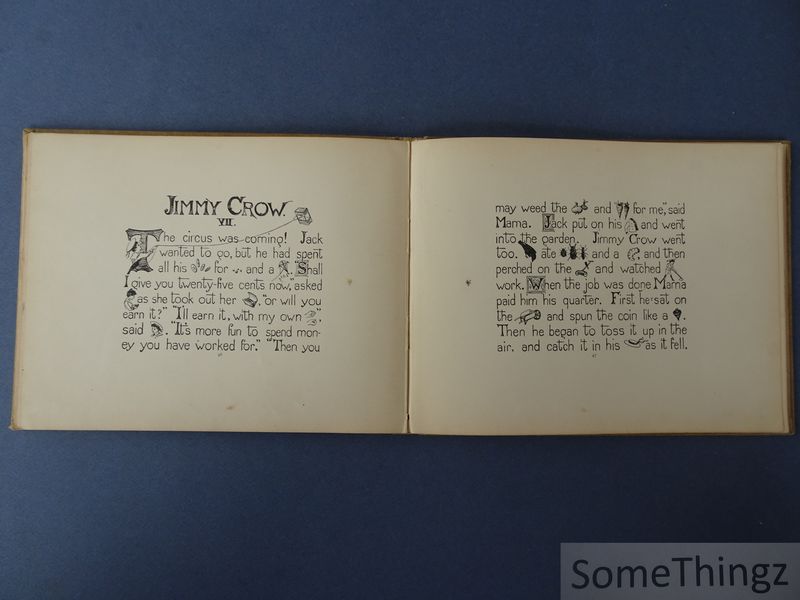 JIMMY CROW.
VII.
The circus was coming! Jack
wanted to go, but he had spent
all his for and a "Shall
I give you twenty-five cents now," asked
as she took out her "or will you
earn it?" "I'll earn it, with my own ",
said "It's more fun to spend mon-
ey you have worked for." "Then you
may weed the and for me," said
Mama. Jack put on his and went
into the garden. Jimmy Crow went
too. ate and a and then
perched on the and watched
work. When the job was done Mama
paid him his quarter. First he sat on
the and spun the coin like a .
Then he began to toss it up in the
air, and catch it in his as it fell.
SomeThingz